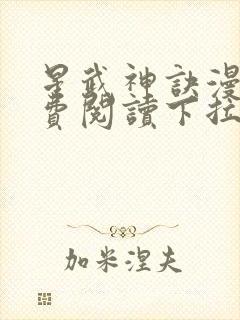 星武神訣漫
費閱讀下拉
加米涅夫